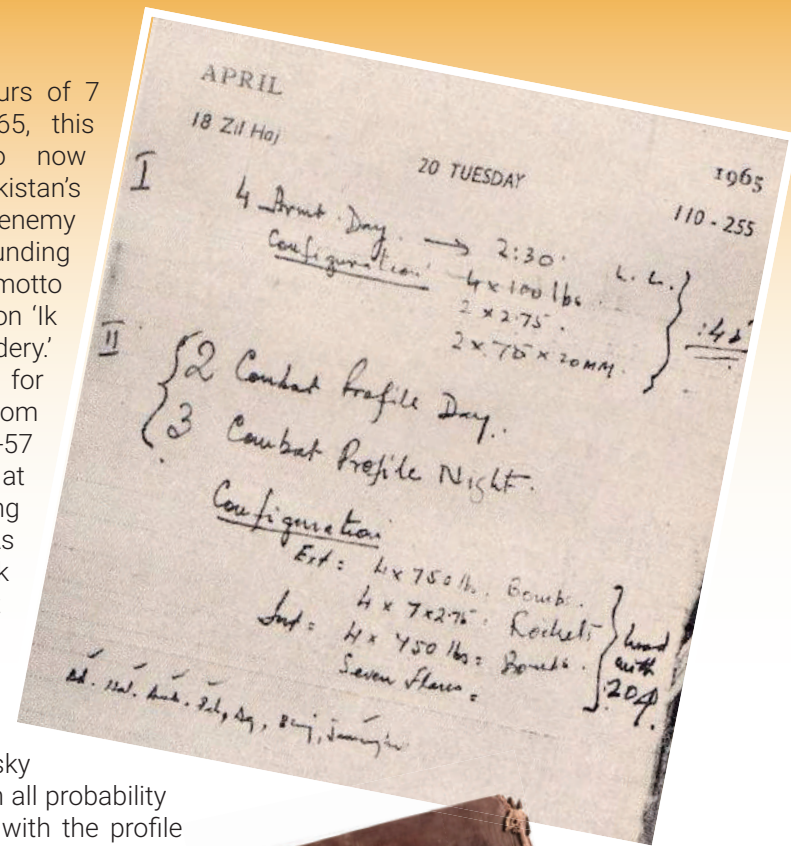 urs of 7
65, this
now
kistan's
enemy
unding
motto
on 'Ik
dery.'
for
om
-57
at
ng
s
k
sky
n all probability
with the profile
APRIL
18 Zil Haj
20 TUESDAY
1965
110 - 255
I
4 Armt. Day. → 2:30
L. L.
Configuration 4 x 100 lbs.
2 x 2.75.
2 x 75 x 20MM.
:45
II
2 Combat Profile Day.
3 Combat Profile Night.
Configuration
Ext = 4 x 750 lb. Bombs.
4 x 7 x 2.75. Rockets
Int = 4 x 450 lbs = Bombs.
Seven Flares =
with
204.